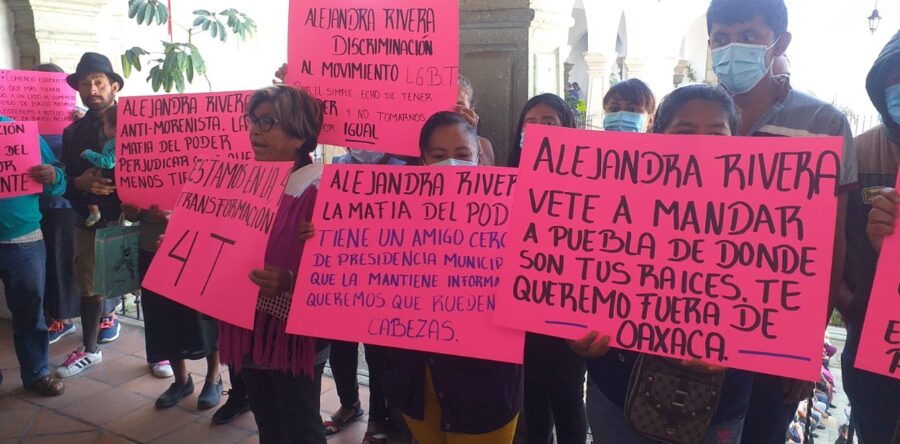 COMERCIO
QUE MAS TIENEN
DEL
ALEJANDRA RIVERA
ANTI-MORENISTA, LA
MAFIA DEL PODER
PERJUDICAR
MENOS
ESTAMOS EN LA
TRANSFORMACIÓN
4T
ALEJANDRA RIVERA
DISCRIMINACIÓN
AL MOVIMIENTO LGBT
POR EL SIMPLE ECHO DE TENER
PODER Y NO TOMARNOS
IGUAL
ALEJANDRA RIVER
LA MAFIA DEL POD
TIENE UN AMIGO CERC
DE PRESIDENCIA MUNICIP
QUE LA MANTIENE INFORMA
QUEREMOS QUE RUEDEN
CABEZAS.
ALEJANDRA RIVERA
VETE A MANDAR
A PUEBLA DE DONDE
SON TUS RAICES. TE
QUEREMO FUERA DE
OAXACA.